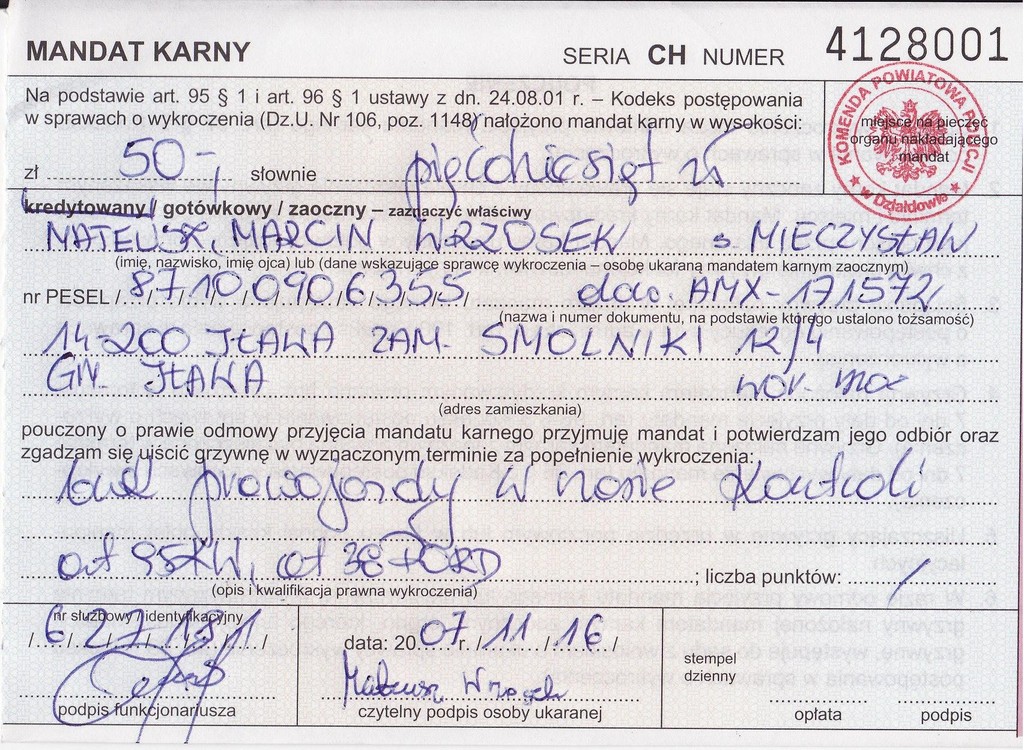 MANDAT KARNY SERIA CH NUMER 4128001
Na podstawie art. 95 § 1 i art. 96 § 1 ustawy z dn. 24.08.01 r. – Kodeks postępowania
w sprawach o wykroczenia (Dz.U. Nr 106, poz. 1148) nałożono mandat karny w wysokości:
KOMENDA POWIATOWA POLICJI
w Działdowie
miejsce na pieczęć
organu nakładającego
mandat
zł 50,- słownie pięćdziesiąt zł
kredytowany / gotówkowy / zaoczny – zaznaczyć właściwy
MATEUSZ, MARCIN WRZOSEK s. MIECZYSŁAW
(imię, nazwisko, imię ojca) lub (dane wskazujące sprawcę wykroczenia – osobę ukaraną mandatem karnym zaocznym)
nr PESEL /8/7/1/0/0/9/0/6/3/5/5/ dow. AMX-171572
(nazwa i numer dokumentu, na podstawie którego ustalono tożsamość)
14-200 IŁAWA ZAM. SMOLNIKI 12/4
GM. IŁAWA
(adres zamieszkania)
pouczony o prawie odmowy przyjęcia mandatu karnego przyjmuję mandat i potwierdzam jego odbiór oraz
zgadzam się uiścić grzywnę w wyznaczonym terminie za popełnienie wykroczenia:
brak prawa jazdy w czasie kontroli
art 95KW, art 38 FORD ; liczba punktów: /
(opis i kwalifikacja prawna wykroczenia)
nr służbowy / identyfikacyjny
data: 2007/11/16/
stempel
dzienny
Mateusz Wrzosek
podpis funkcjonariusza czytelny podpis osoby ukaranej opłata podpis